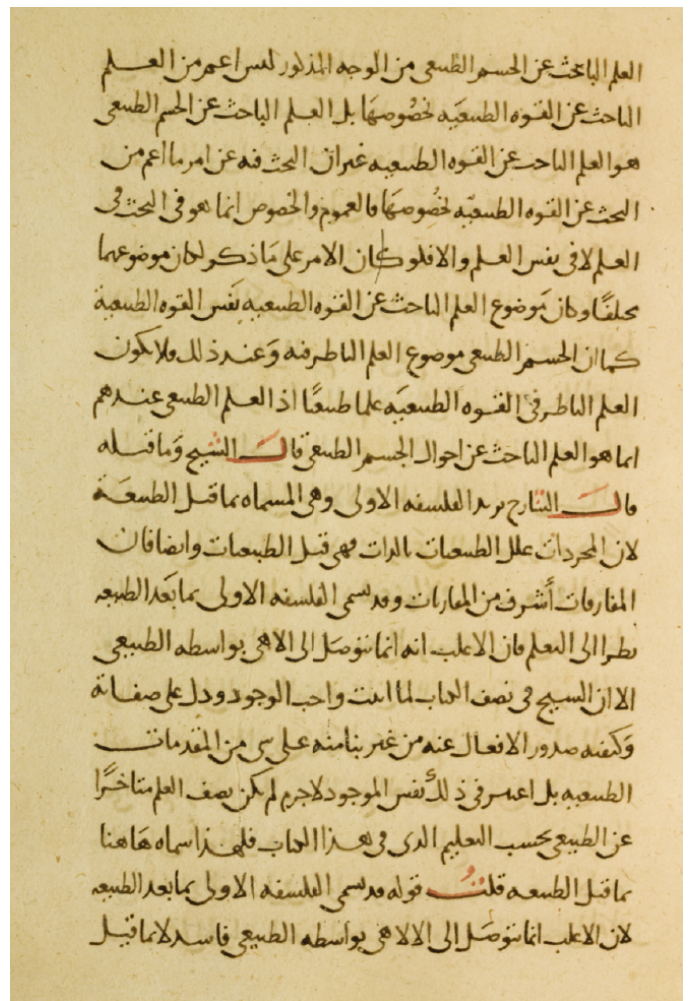 العلم الباحث عن الجسم الطبيعى من الوجه المذكور ليس اعم من العلم
الباحث عن القوه الطبيعيه بخصوصها بل العلم الباحث عن الجسم الطبيعى
هو العلم الباحث عن القوه الطبيعيه غير ان البحث فيه عن امر ما اعم من
البحث عن القوه الطبيعيه بخصوصها فالعموم والخصوص انما هو فى البحث فى
العلم لا فى نفس العلم والا فلو كان الامر على ما ذكر لكان موضوعهما
مختلفا وكان موضوع العلم الباحث عن القوه الطبيعيه نفس القوه الطبيعية
كما ان الجسم الطبيعى موضوع العلم الناظر فيه وعند ذلك فلا يكون
العلم الناظر فى القوه الطبيعيه علما طبيعيا اذ العلم الطبيعى عندهم
انما هو العلم الباحث عن احوال الجسم الطبيعى قال الشيخ وما قبله
قال الشارح يريد الفلسفه الاولى وهى المسماه بما قبل الطبيعة
لان المجردات علل الطبيعيات بالذات فهى قبل الطبيعيات وايضا فان
المفارقات أشرف من المقارنات وقد يسمى الفلسفه الاولى بما بعد الطبيعه
نظرا الى التعلم فان الاغلب انه انما يتوصل الى الاهى بواسطه الطبيعي
الا ان الشيخ فى نصف الكتاب لما اثبت واجب الوجود ودل على صفاته
وكيفيه صدور الافعال عنه من غير بنا منه على شى من المقدمات
الطبيعيه بل اعتبر فى ذلك نفس الموجود لاجرم لم يكن نصف العلم متاخرا
عن الطبيعي بحسب التعليم الذى فى هذا الكتاب فلهذا سماه هاهنا
بما قبل الطبيعه قلت قوله قد يسمى الفلسفه الاولى بما بعد الطبيعه
لان الاغلب انما يتوصل الى الالاهى بواسطه الطبيعي فاسد لانما قيل